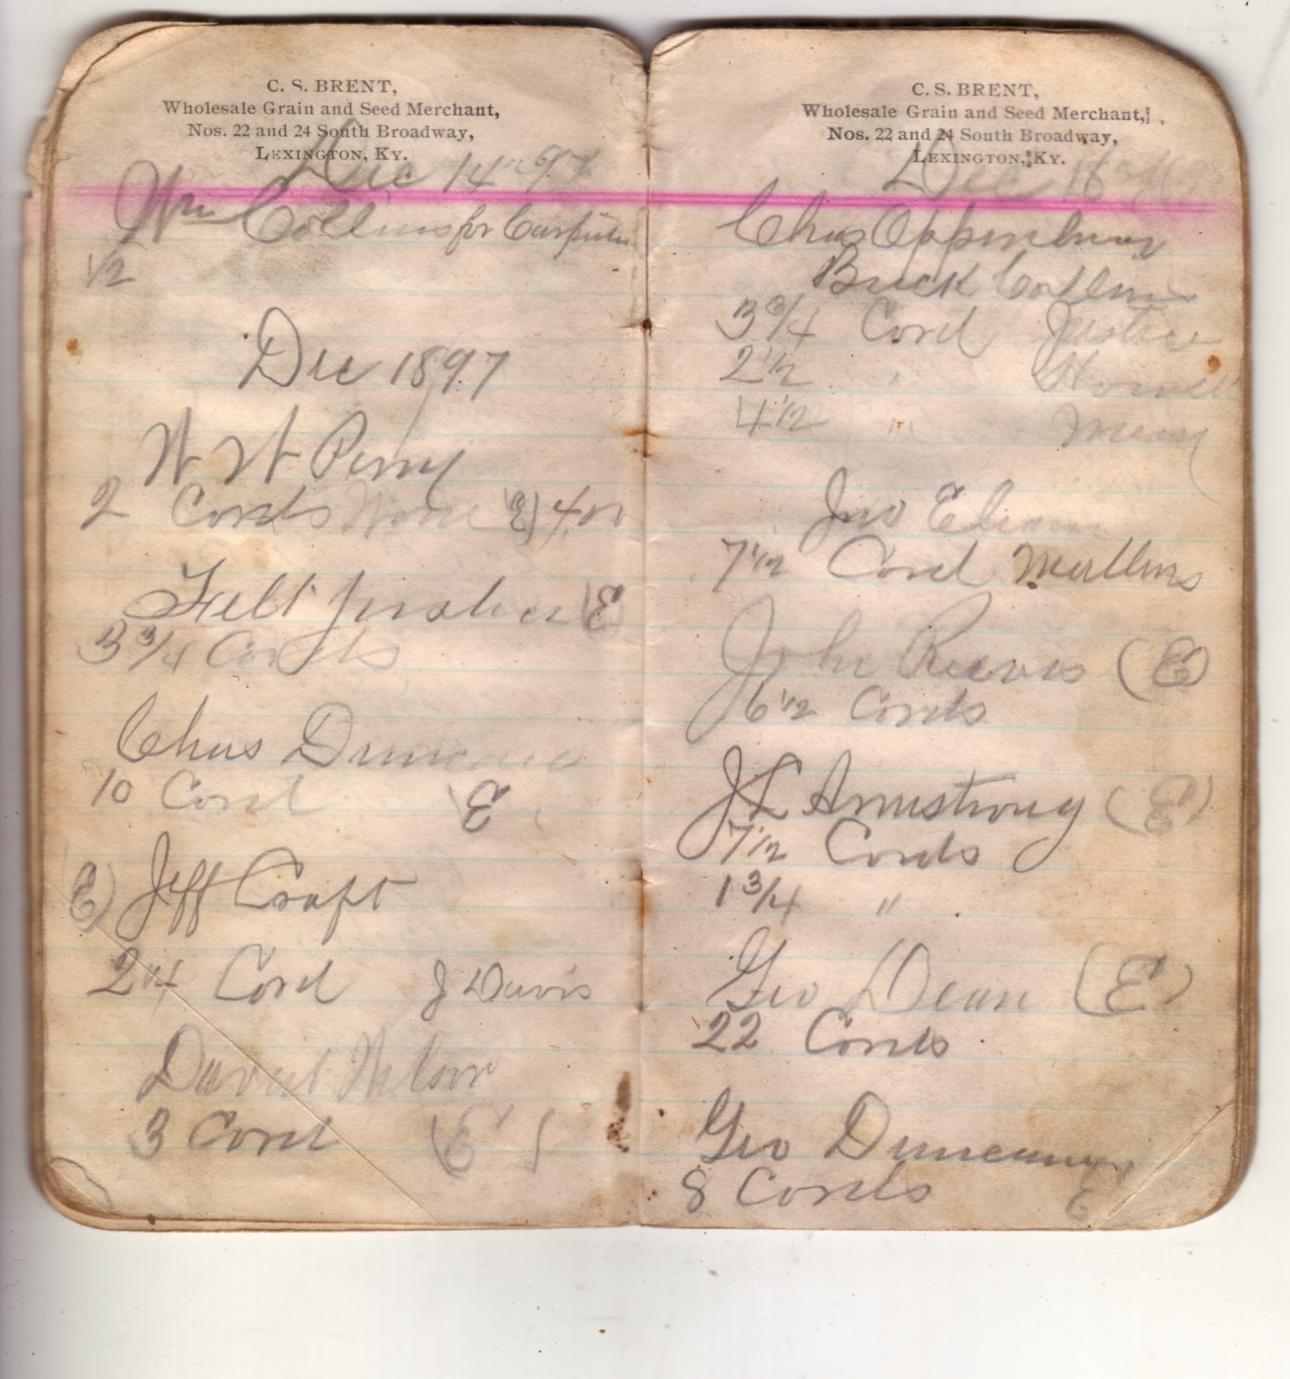 C. S. BRENT,
Wholesale Grain and Seed Merchant,
Nos. 22 and 24 South Broadway,
LEXINGTON, KY.
Dec 14th 97
Wm Collins for
1/2
Dec 1897
W W Perry
2 Cords (E) 4 00
Felt Justice (E
3 3/4 Cords
Chas Duncan
10 Cord (E
E) Jeff Craft
24 Cord J Davis
David
3 Cord (E
C. S. BRENT,
Wholesale Grain and Seed Merchant,
Nos. 22 and 24 South Broadway,
LEXINGTON, KY.
Dec 16
Chas
Buck Collins
3 3/4 Cord Justice
2 1/2 "
4 1/2 "
Jno
7 1/2 Cord Mullins
John Reeves (E)
6 1/2 Cords
J L Armstrong (E)
7 1/2 Cords
1 3/4 "
Geo Dean (E)
22 Cords
Geo Duncan
8 Cords E